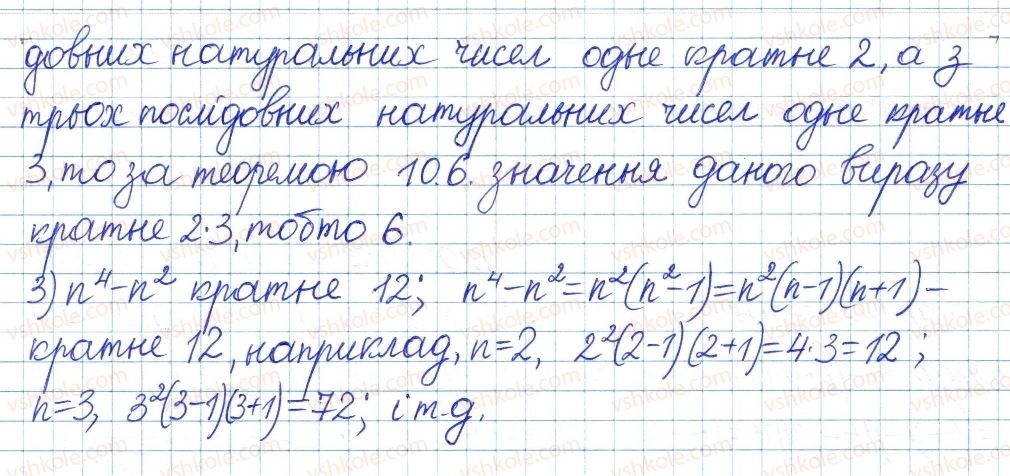 довних натуральних чисел одне кратне 2, а з
трьох послідовних натуральних чисел одне кратне
3, то за теоремою 10.6. значення даного виразу
кратне 2·3, тобто 6.
3) n⁴-n² кратне 12; n⁴-n²=n²(n²-1)=n²(n-1)(n+1)-
кратне 12, наприклад, n=2, 2²(2-1)(2+1)=4·3=12;
n=3, 3²(3-1)(3+1)=72; і т.д.